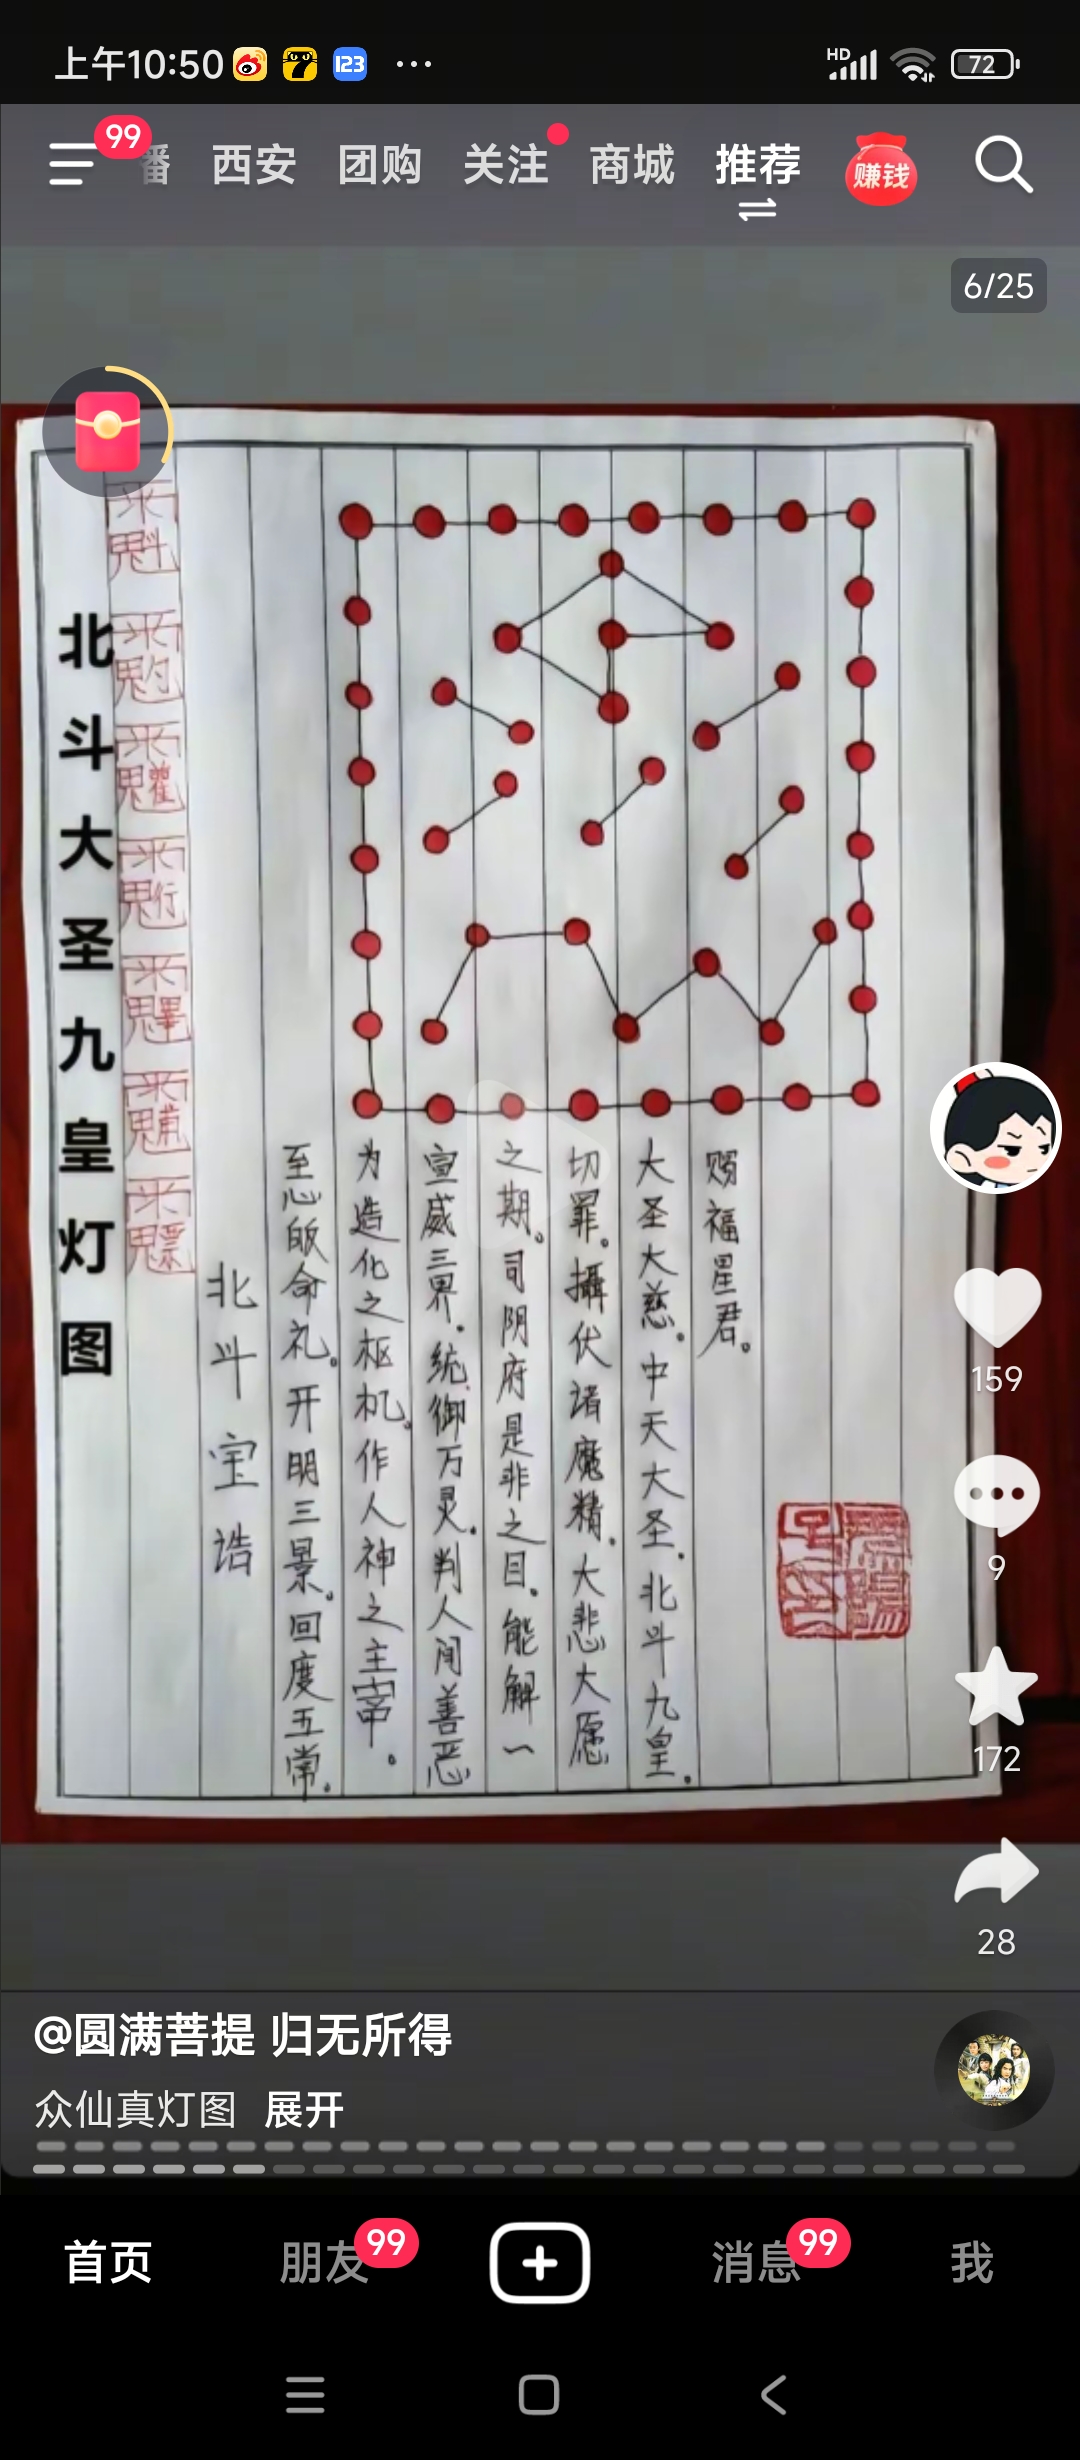 上午10:50 123 ... HD 72
99
播 西安 团购 关注 商城 推荐 赚钱
6/25
北斗大圣九皇灯图
魁
魓
北斗宝诰
至心皈命礼。开明三景。回度五常。
为造化之枢机。作人神之主宰。
宣威三界。统御万灵。判人间善恶
之期。司阴府是非之目。能解一
切罪。摄伏诸魔精。大悲大愿
大圣大慈。中天大圣。北斗九皇。
赐福星君。
159
9
172
28
@圆满菩提 归无所得
众仙真灯图 展开
首页 朋友 99 消息 99 我